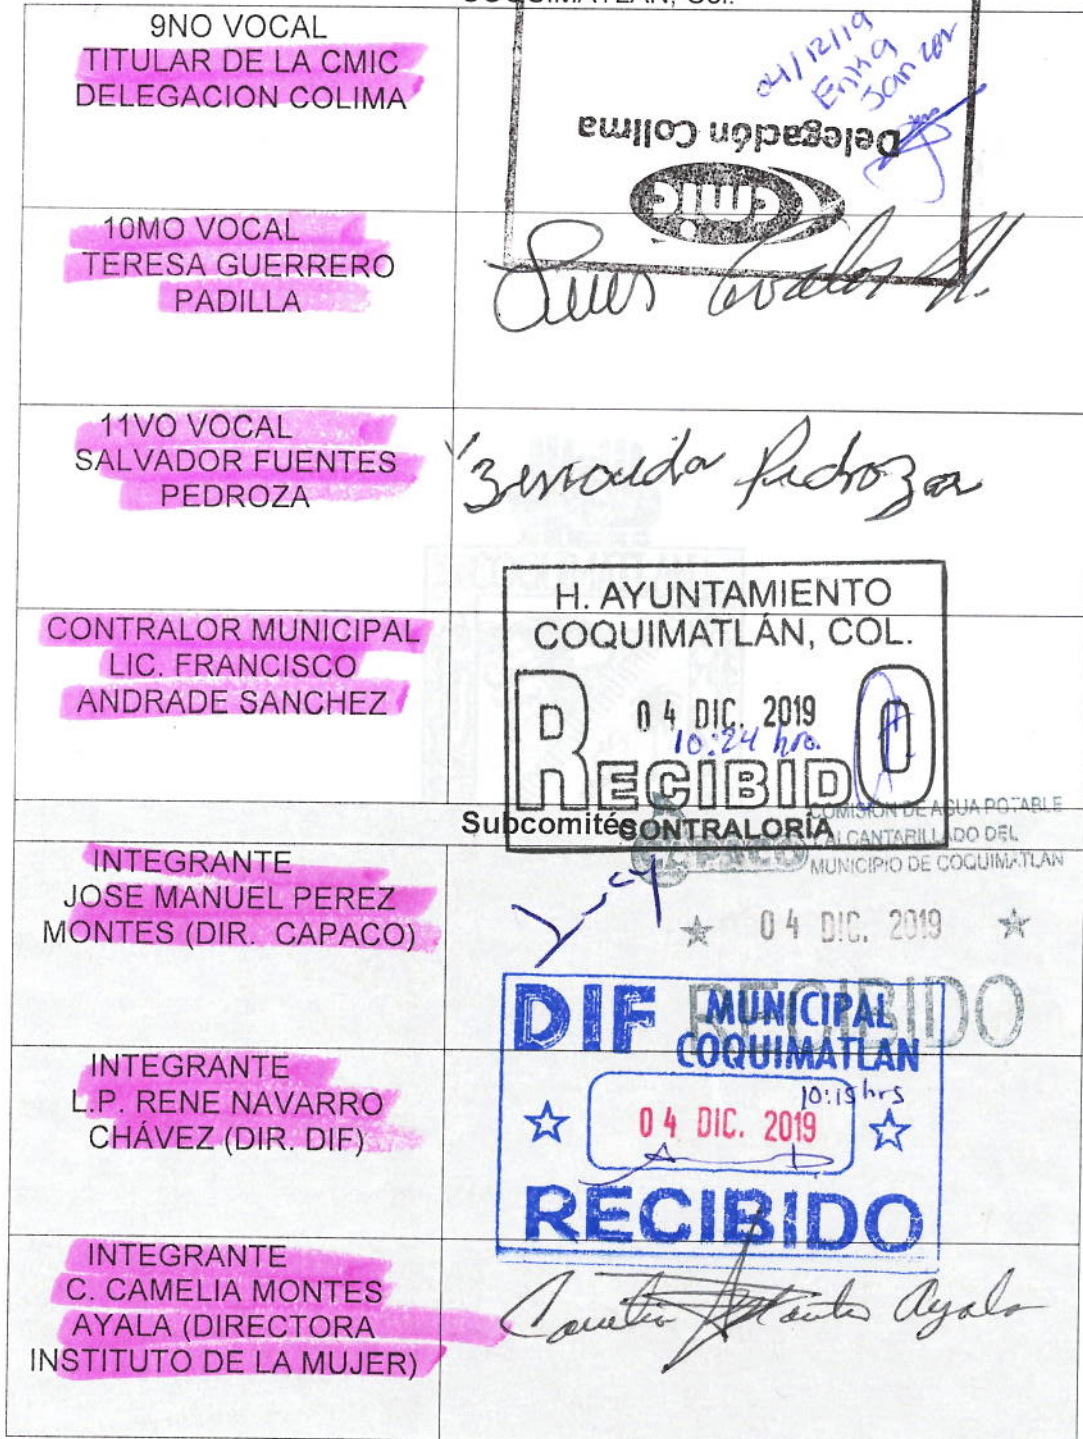 COQUIMATLAN, Col.
9NO VOCAL
TITULAR DE LA CMIC
DELEGACION COLIMA
04/12/19
Delegación Colima
cmic
10MO VOCAL
TERESA GUERRERO
PADILLA
11VO VOCAL
SALVADOR FUENTES
PEDROZA
Pedroza
CONTRALOR MUNICIPAL
LIC. FRANCISCO
ANDRADE SANCHEZ
H. AYUNTAMIENTO
COQUIMATLÁN, COL.
04 DIC. 2019
10:24 hrs.
RECIBIDO
CONTRALORÍA
Subcomités
INTEGRANTE
JOSE MANUEL PEREZ
MONTES (DIR. CAPACO)
COMISIÓN DE AGUA POTABLE
Y ALCANTARILLADO DEL
MUNICIPIO DE COQUIMATLAN
04 DIC. 2019
RECIBIDO
INTEGRANTE
L.P. RENE NAVARRO
CHÁVEZ (DIR. DIF)
DIF MUNICIPAL
COQUIMATLAN
10:15 hrs
04 DIC. 2019
RECIBIDO
INTEGRANTE
C. CAMELIA MONTES
AYALA (DIRECTORA
INSTITUTO DE LA MUJER)
Camelia Montes Ayala